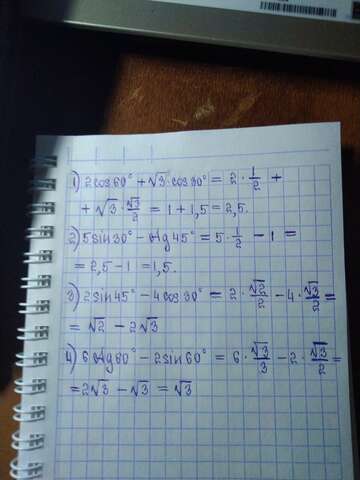 1) 2cos60° + √3 · cos30° = 2 · 1/2 +
+ √3 · √3/2 = 1 + 1,5 = 2,5.
2) 5sin30° - ctg45° = 5 · 1/2 - 1 =
= 2,5 - 1 = 1,5.
3) 2sin45° - 4cos30° = 2 · √2/2 - 4 · √3/2 =
= √2 - 2√3
4) 6ctg60° - 2sin60° = 6 · √3/3 - 2 · √3/2 =
= 2√3 - √3 = √3